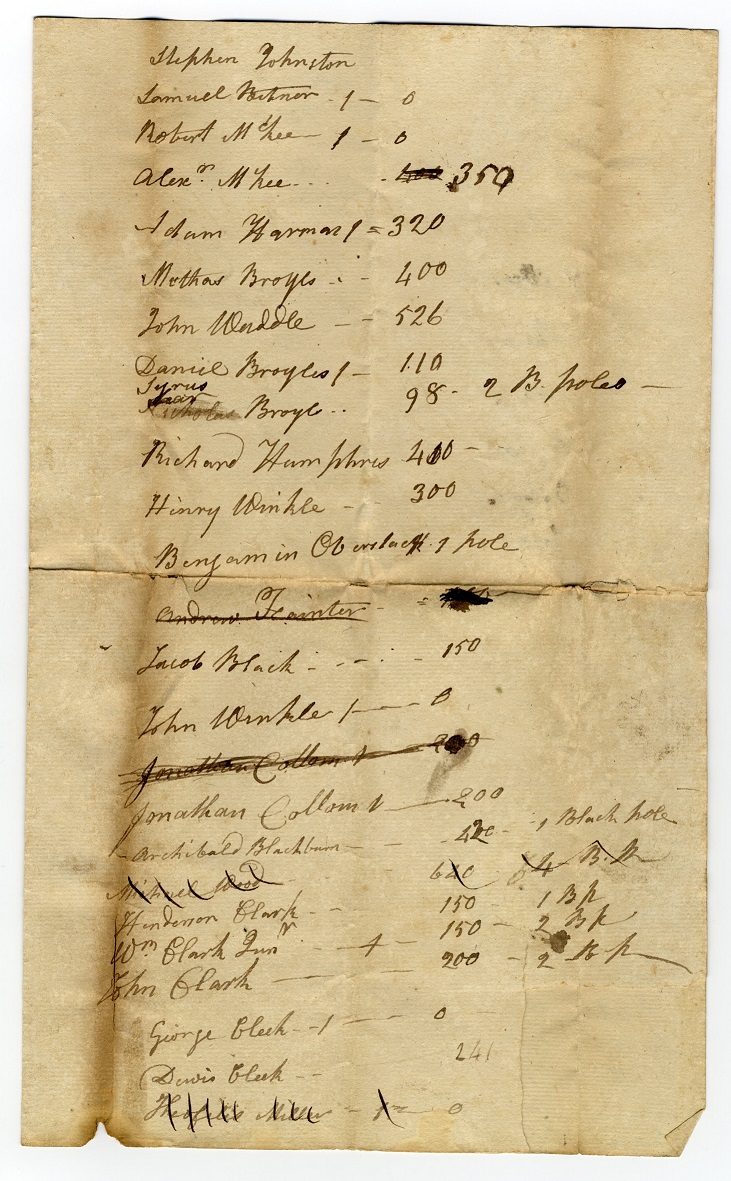 Stephen Johnston
Samuel Bitner - 1 - 0
Robert McKee - 1 - 0
Alexr McKee - - - 350
Adam Harman 1 = 320
Mathas Broyls - - 400
John Waddle - - 526
Daniel Broyles 1 - 110
Syrus
Broyl - - 98 - 2 B. poles -
Richard Humphres 400 -
Henry Winkle - - 300
Benjamin 1 pole
Andrew Painter - =
Jacob Black - - - - 150
John Winkle 1 - - 0
Jonathan Collom 1 200
Jonathan Collom 1 - 200
Archibald Blackburn - - 420 - 1 Black pole
Michael Wood 640 4 B. P
Henderson Clark - - 150 - 1 B p
Wm Clark Junr - 1 - 150 - 2 B p
John Clark - - 200 - 2 B p
George Cleek - 1 - - 0
Dewis Cleek - - 241
Miller - 1 - 0